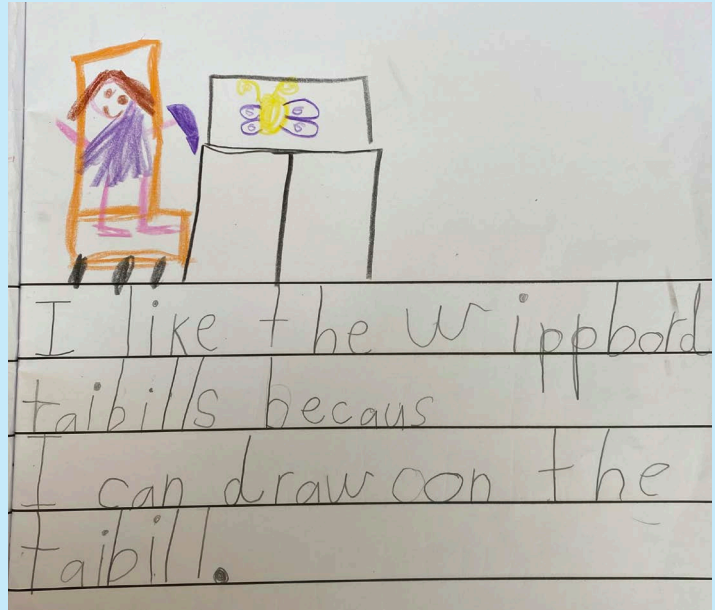 I like the wippbord
taibills becaus
I can draw oon the
taibill.